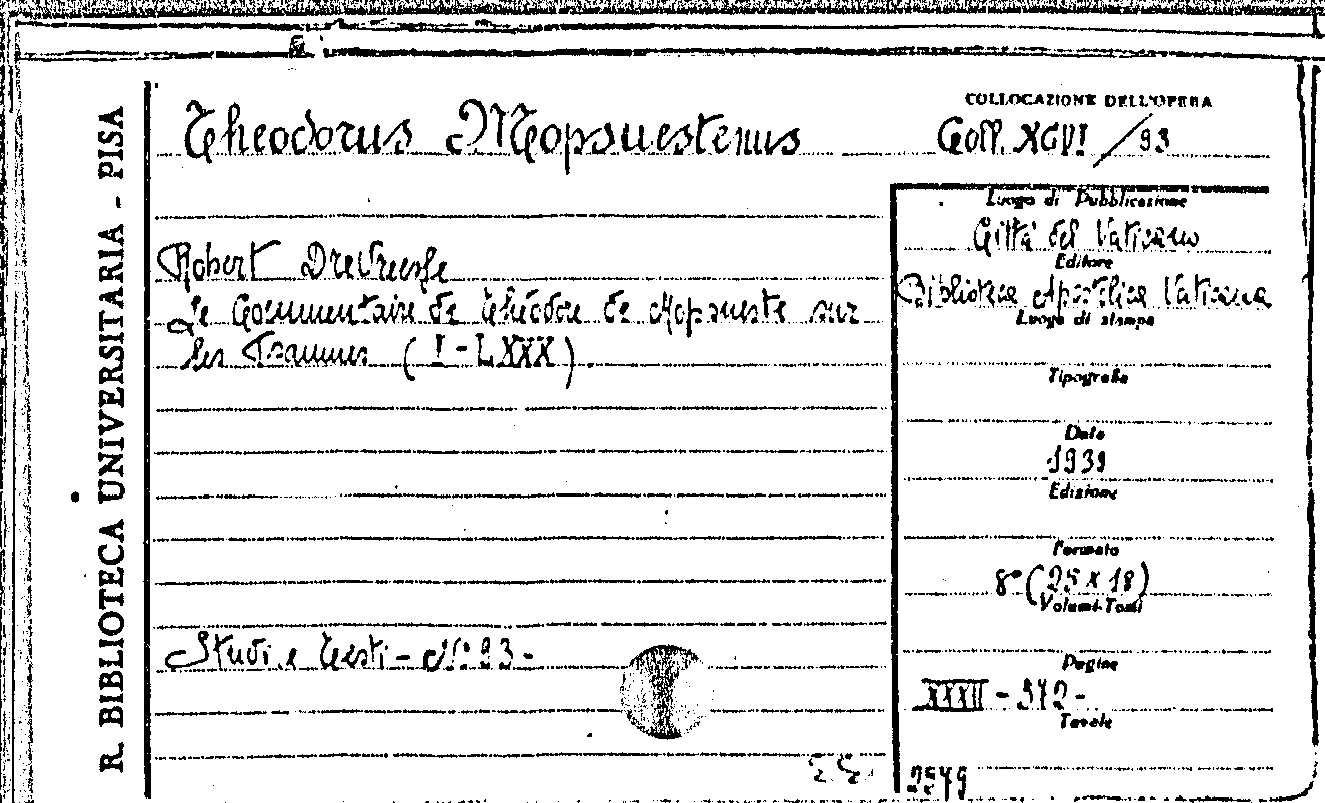 R. BIBLIOTECA UNIVERSITARIA - PISA
Theodorus Mopsuestenus
COLLOCAZIONE DELL'OPERA
Coll. XCVI / 93
Luogo di Pubblicazione
Città del Vaticano
Editore
Biblioteca Apostolica Vaticana
Luogo di stampa
Tipografia
Data
1939
Edizione
Formato
8° (25 x 18)
Volumi-Tomi
Pagine
XXXII - 572 -
Tavole
2579
Robert Devreesse
Le Commentaire de Théodore de Mopsueste sur
les Psaumes (I - LXXX).
Studi e Testi - N° 93 -